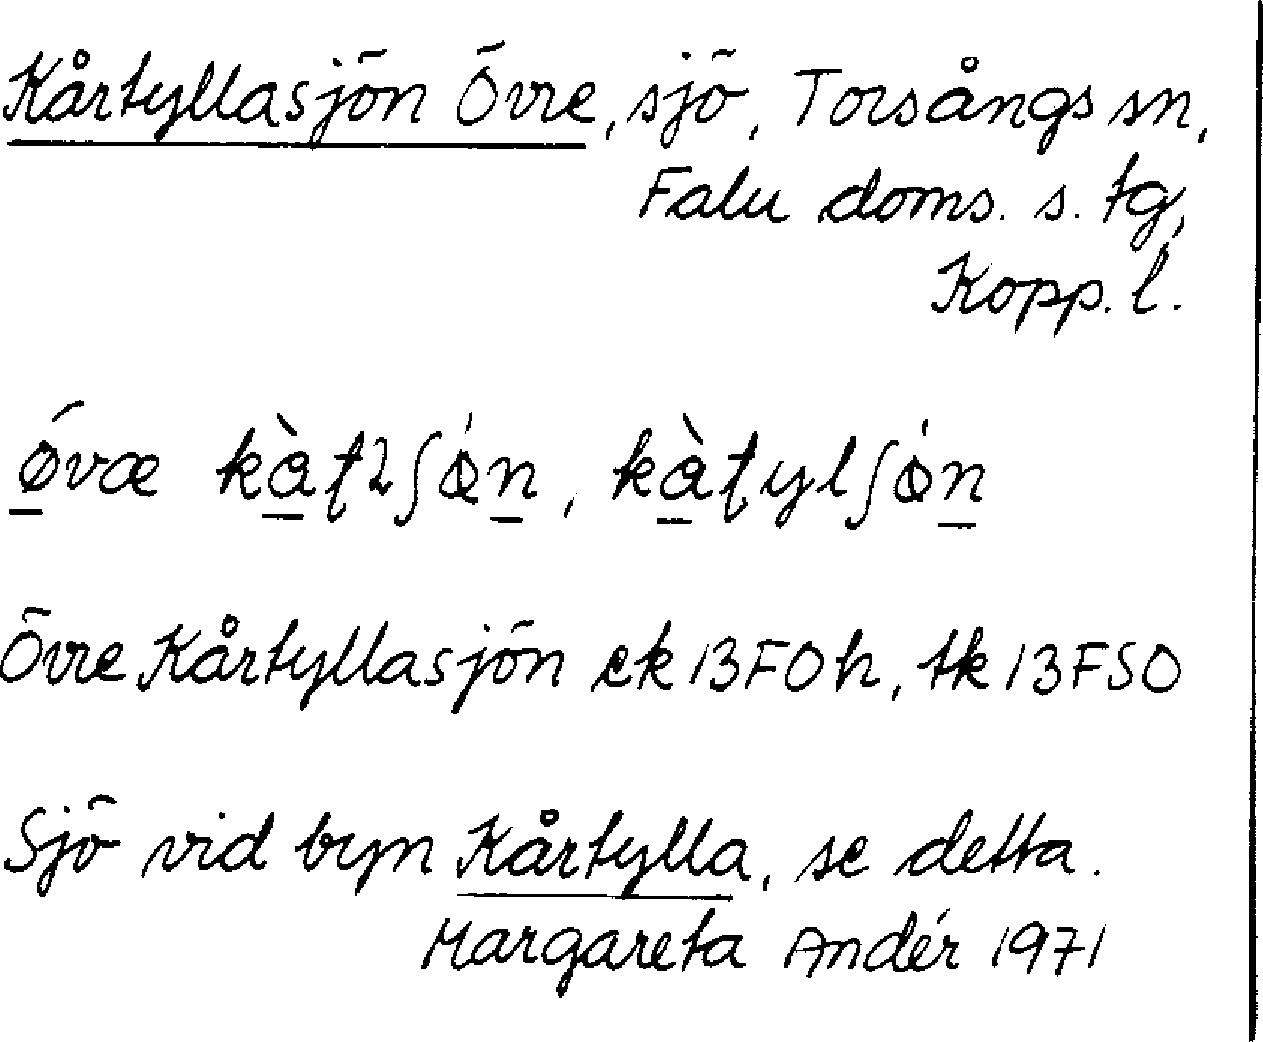 Kårtyllasjön Övre, sjö, Torsångs sn,
Falu doms. s. tg,
Kopp. l.
Övre Kårtyllasjön ek 13F0h, tk 13FSO
Sjö vid byn Kårtylla, se detta.
Margareta Andér 1971